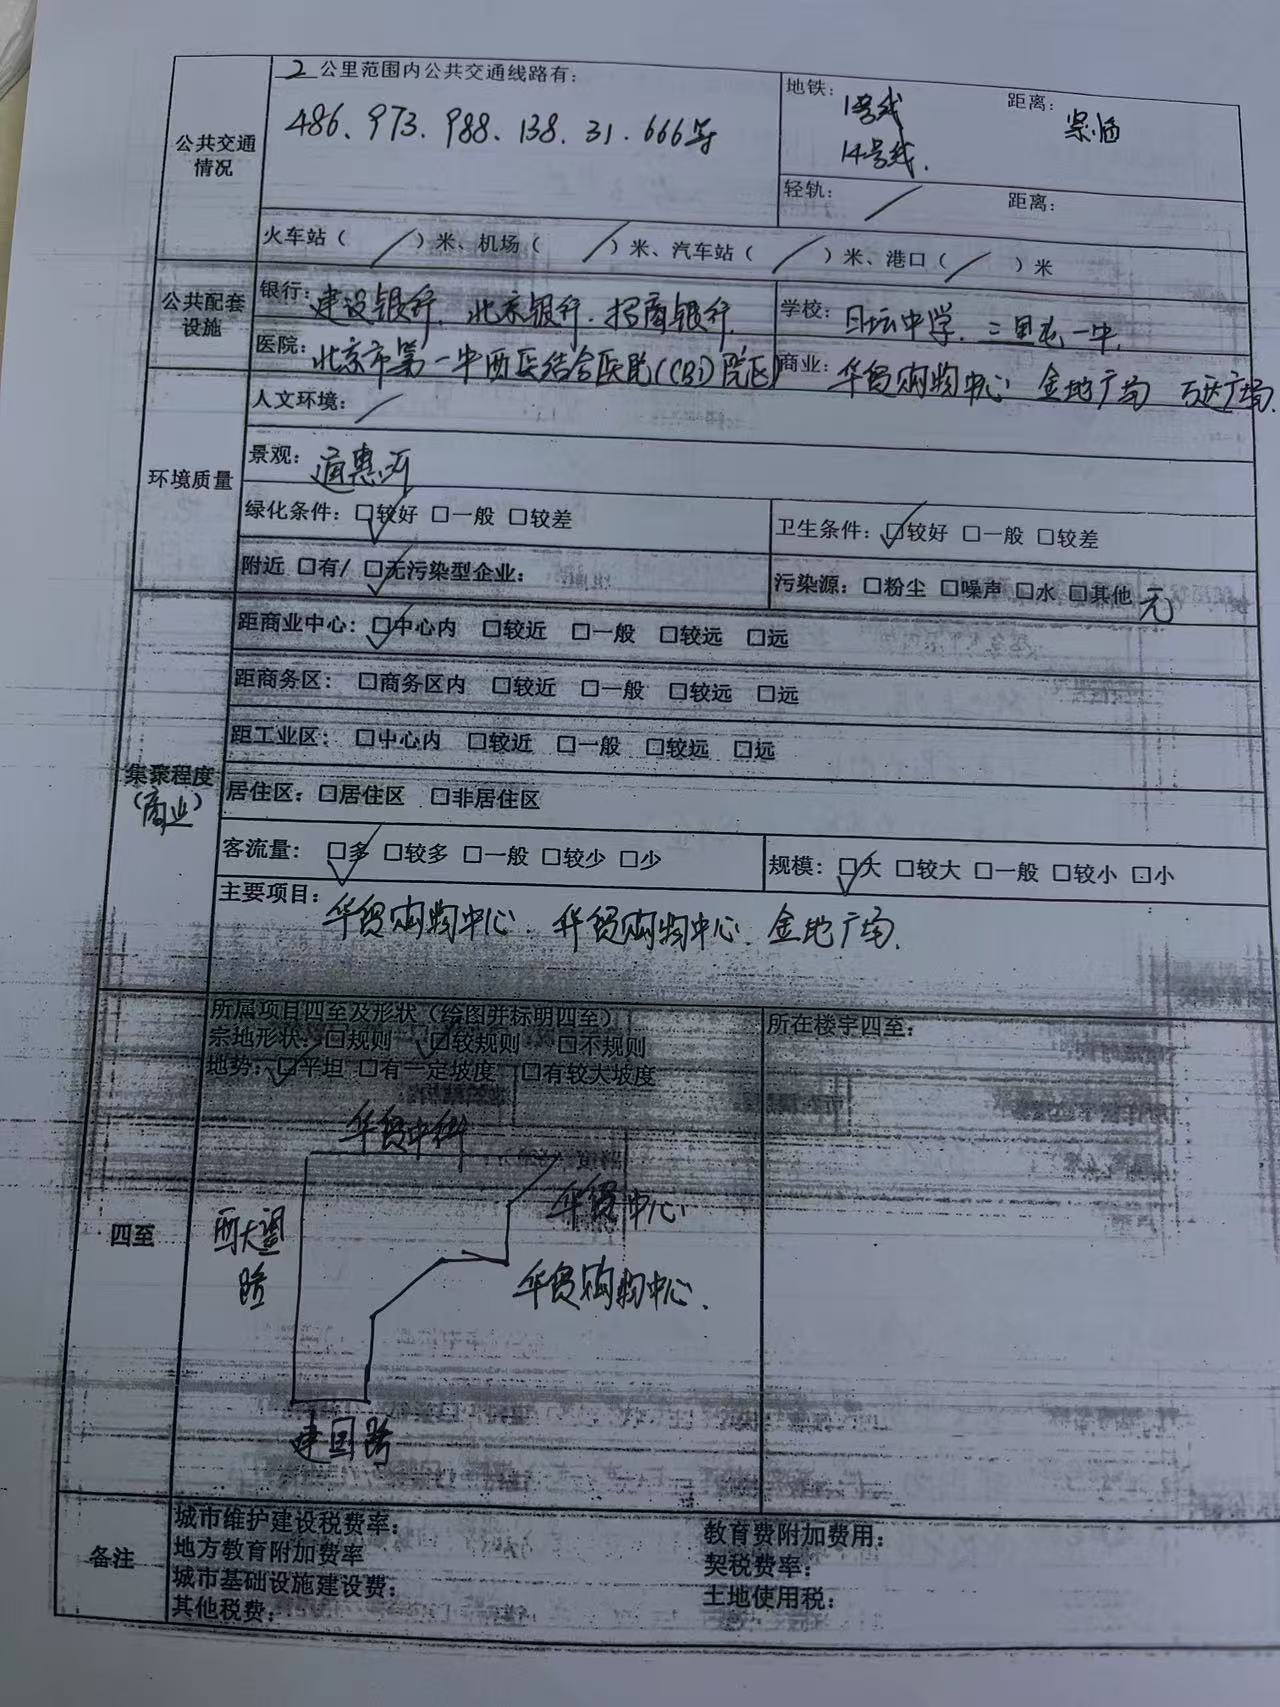 2 公里范围内公共交通线路有：
486、973、988、138、31、666等
地铁： 1号线 距离： 紧临
14号线、
公共交通情况
轻轨： / 距离：
火车站（ / ）米、机场（ / ）米、汽车站（ / ）米、港口（ / ）米
公共配套设施
银行：建设银行、北京银行、招商银行、
学校：日坛中学、三里屯一中、
医院：北京市第一中西医结合医院(CBD院区)
商业：华贸购物中心 金地广场 万达广场、
人文环境： /
环境质量
景观：通惠河
绿化条件：☑较好 □一般 □较差
卫生条件：☑较好 □一般 □较差
附近 □有/ ☑无污染型企业：
污染源：□粉尘 □噪声 □水 □其他 无
距商业中心：☑中心内 □较近 □一般 □较远 □远
距商务区： □商务区内 □较近 □一般 □较远 □远
距工业区： □中心内 □较近 □一般 □较远 □远
集聚程度
（商业）
居住区：□居住区 □非居住区
客流量： ☑多 □较多 □一般 □较少 □少
规模：☑大 □较大 □一般 □较小 □小
主要项目：华贸购物中心、华贸购物中心、金地广场、
所属项目四至及形状（绘图并标明四至）
所在楼宇四至：
宗地形状：□规则 ☑较规则 □不规则
地势：☑平坦 □有一定坡度 □有较大坡度
华贸中心
华贸购物中心、
四至
西大望
路
建国路
备注
城市维护建设税费率：
教育费附加费用：
地方教育附加费率
契税费率：
城市基础设施建设费：
土地使用税：
其他税费：